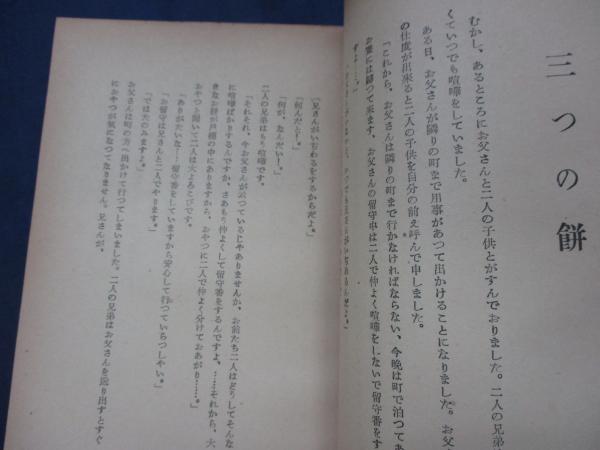 三つの餅
むかし、あるところにお父さんと二人の子供とがすんでおりました。二人の兄弟
くていつでも喧嘩をしていました。
ある日、お父さんが隣りの町まで用事があつて出かけることになりました。お父
の仕度が出来ると二人の子供を自分の前え呼んで申しました。
「これから、お父さんは隣りの町まで行かなければならない、今晩は町で泊つてあ
お家には帰つて来ます。お父さんの留守中は二人で仲よく喧嘩をしないで留守番をす
すよ……。」
「兄さんがいぢわるをするからだよ。」
「何んだと！。」
「何が、なんだい！。」
二人の兄弟はもう喧嘩です。
「それそれ、今お父さんが云つているじやありませんか、お前たち二人はどうしてそんな
に喧嘩ばかりするんですか、さあもう仲よくして留守番をするんですよ、……それから、大
きなお餅が戸棚の中にありますから、おやつに二人で仲よく分けておあがり……。」
おやつと聞いて二人は大よろこびです。
「ありがたいな！……留守番をしていますから安心して行つていらつしやい。」
「お留守は兄さんと二人でやります。」
「では大のみますよ。」
お父さんは町の方へ出かけて行つてしまいました。二人の兄弟はお父さんを送り出すとすぐ
におやつが気になつてなりません。兄さんが、